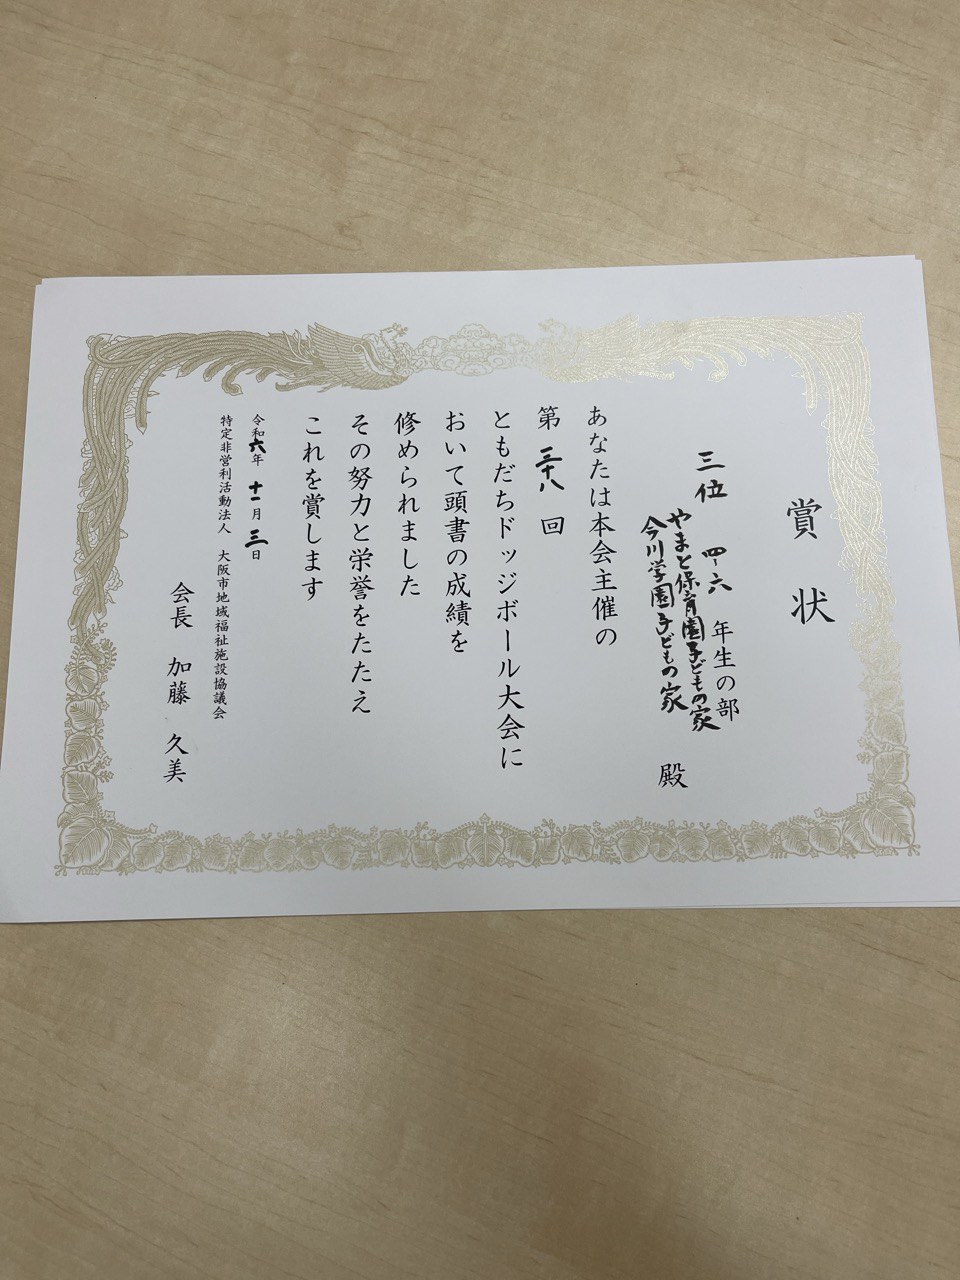 賞状
三位 四~六年生の部
やまと保育園子どもの家
今川学園子どもの家 殿
あなたは本会主催の
第三十八回
ともだちドッジボール大会に
おいて頭書の成績を
修められました
その努力と栄誉をたたえ
これを賞します
令和六年十一月三日
特定非営利活動法人 大阪市地域福祉施設協議会
会長 加藤 久美